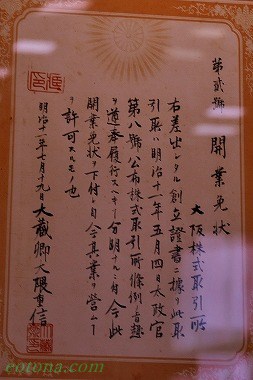 第弐號 開業免状
大阪株式取引所
右差出シタル創立證書ニ據リ此取
引所ハ明治十一年五月四日太政官
第八號公布株式取引所條例ノ旨趣
ヲ遵奉履行スヘキ分明ナルニ付今此
開業免状ヲ下付シ自今其業ヲ営ムー
ヲ許可スルモノ也
明治十一年七月十九日大蔵卿大隈重信
eotona.com